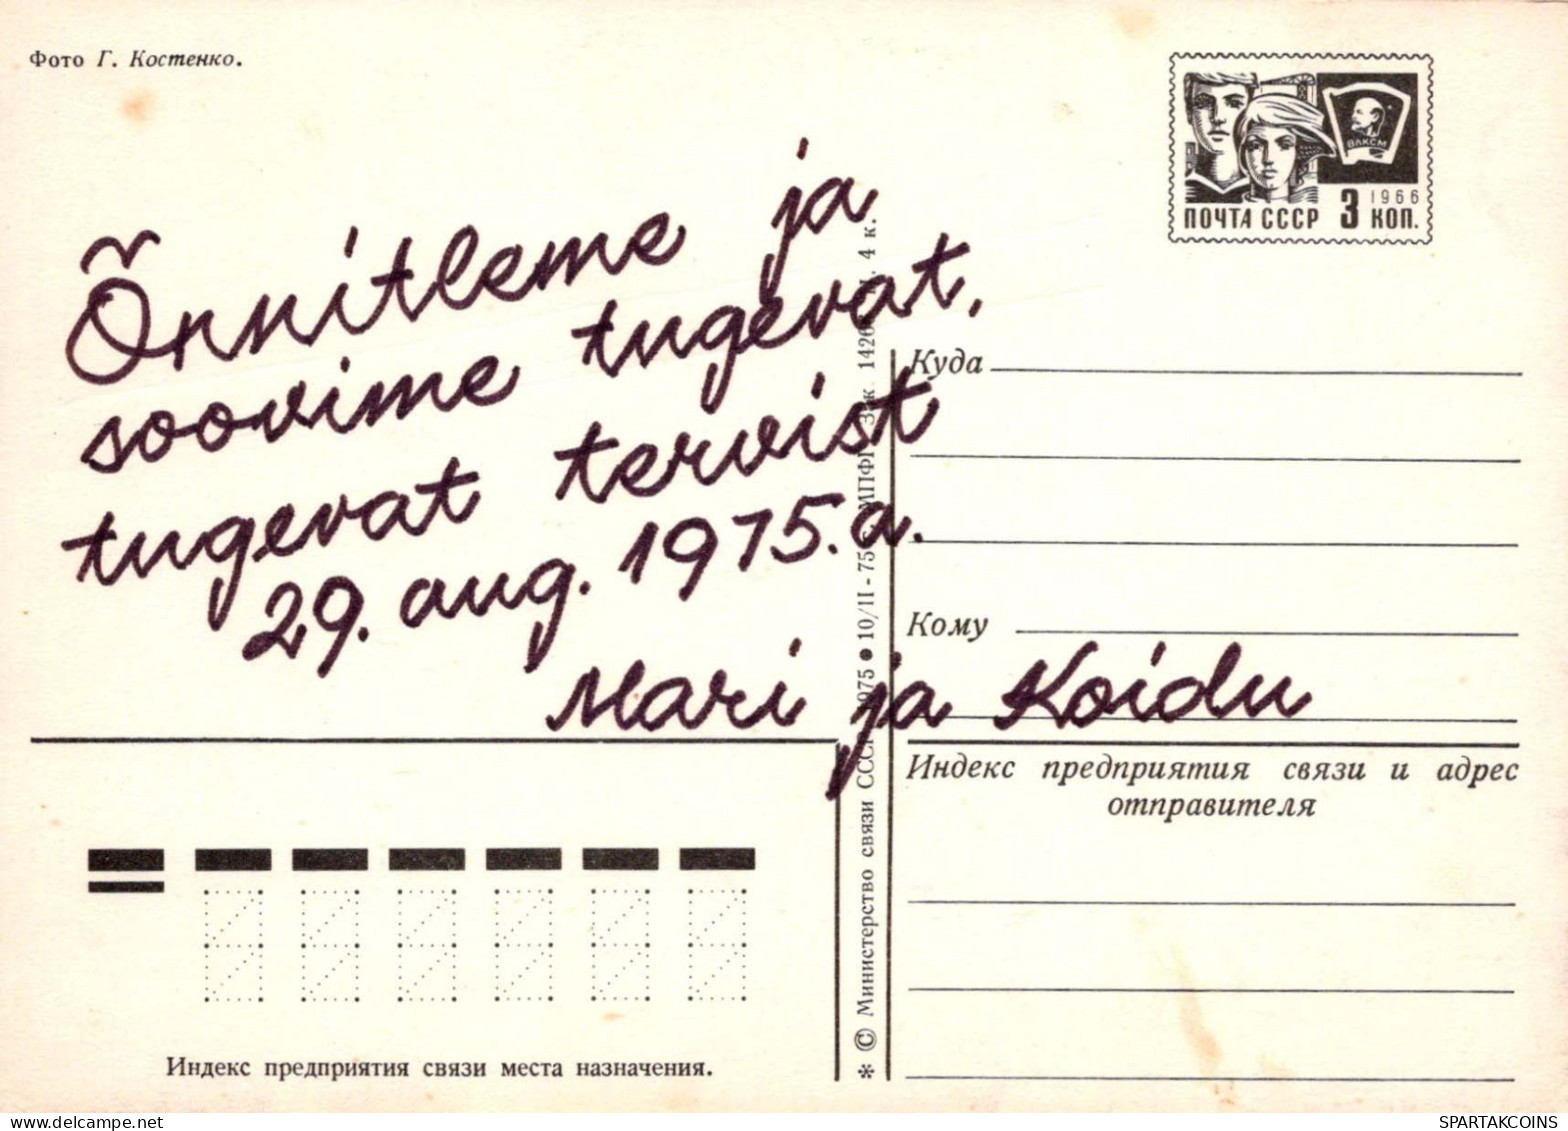 Фото Г. Костенко.
ВЛКСМ
1966
ПОЧТА СССР 3 КОП.
Õnnitleme ja
soovime tugevat,
tugevat tervist
29. aug. 1975. a.
Mari ja Koidu
Куда
Кому
Индекс предприятия связи и адрес
отправителя
* © Министерство связи СССР 1975 ● 10/II - 75 МПФГ Зак. 4 к.
Индекс предприятия связи места назначения.
delcampe.net
SPARTAKCOINS